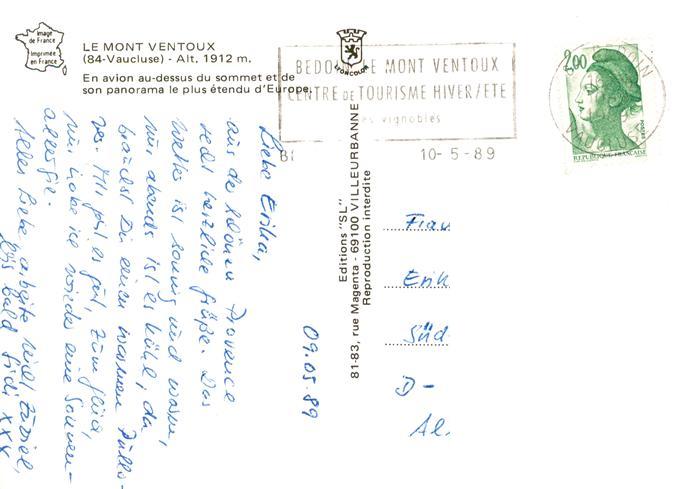 Image
de France
Imprimée
en France
LE MONT VENTOUX
(84-Vaucluse) - Alt. 1912 m.
En avion au-dessus du sommet et de
son panorama le plus étendu d'Europe.
LYONCOLOR
BEDOIN LE MONT VENTOUX
CENTRE DE TOURISME HIVER/ETE
ses vignobles
10-5-89
2,00
REPUBLIQUE FRANCAISE
VAUCLUSE
Editions "SL"
81-83, rue Magenta - 69100 VILLEURBANNE
Reproduction interdite
09.05.89
Liebe Erika,
aus der schönen Provence
sehr herzliche Grüße. Das
Wetter ist sonnig und warm,
nur abends ist es kühl, da
brauchst Du einen warmen Pullo-
ver. Mir geht es gut, zum Glück,
nur habe ich wieder eine Sonnen-
allergie.
Alles Liebe, arbeite nicht zuviel,
bis bald XXX
Frau
Erik
Süd
D-
Al.